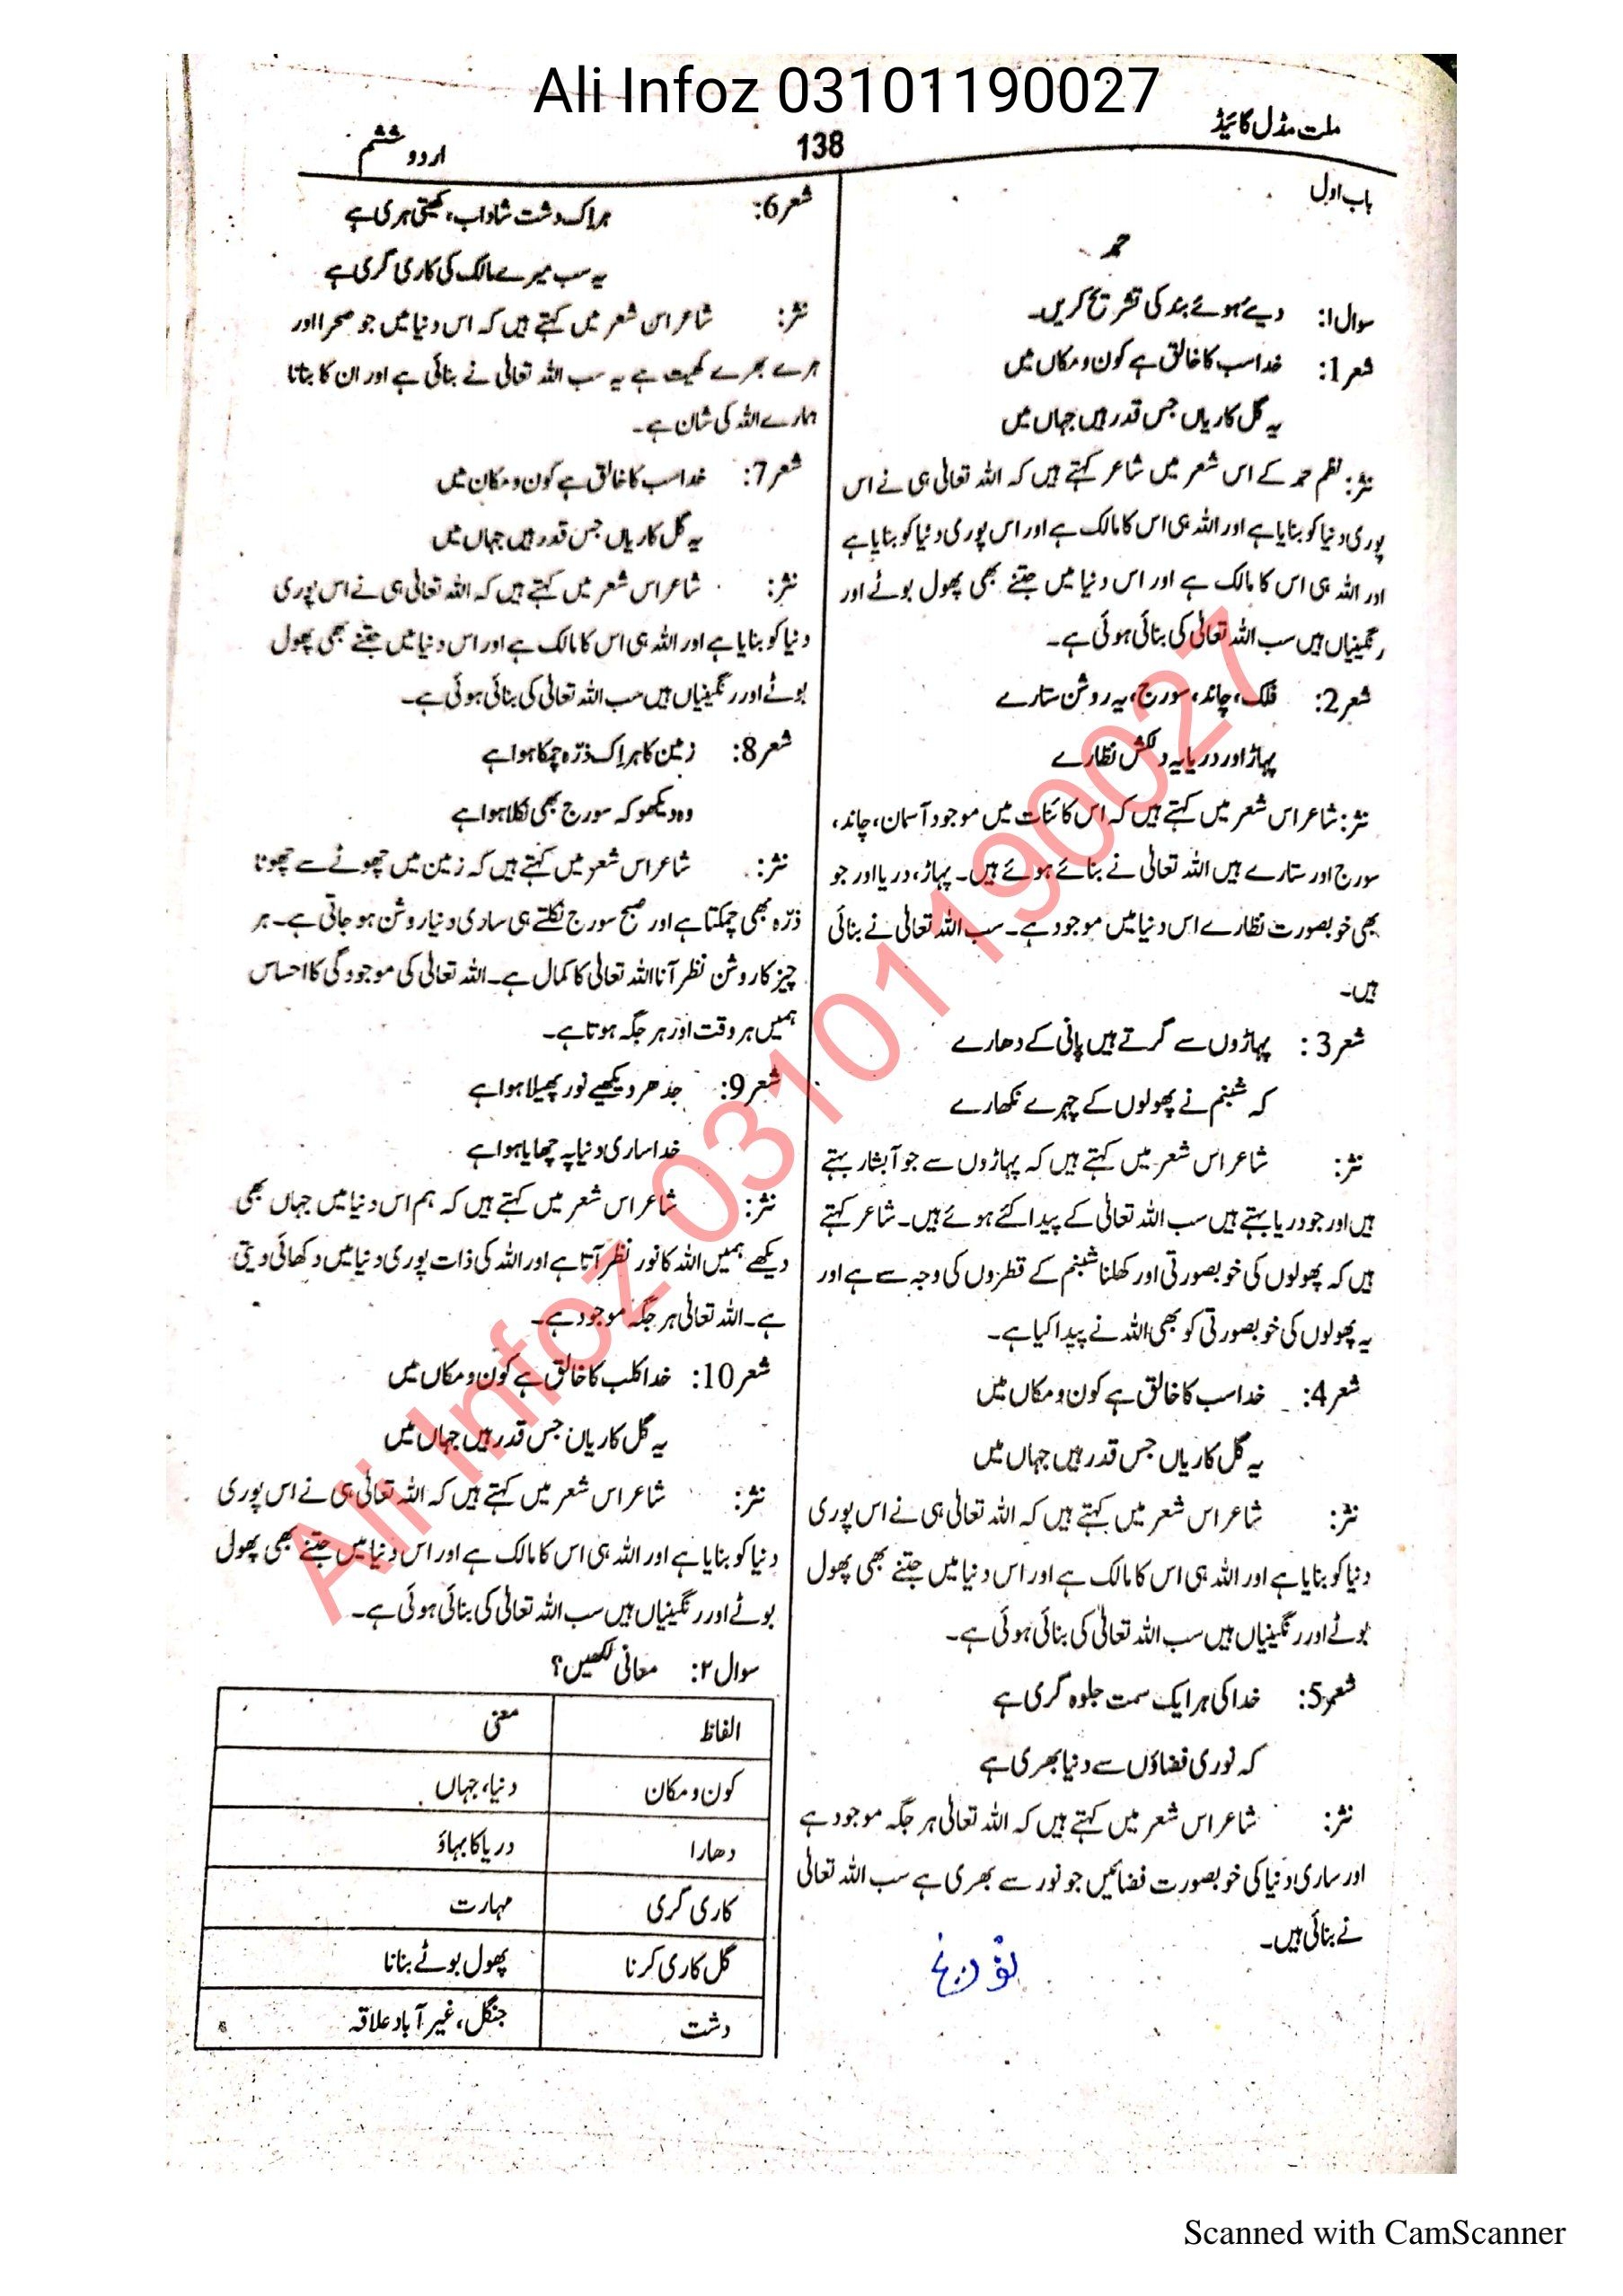 Ali Infoz 03101190027
ملت مڈل گائیڈ
138
اردو ششم
باب اول
حمد
سوال1: دیے ہوئے بند کی تشریح کریں۔
شعر1: خدا سب کا خالق ہے کون و مکاں میں
یہ گل کاریاں جس قدر ہیں جہاں میں
نثر: نظم حمد کے اس شعر میں شاعر کہتے ہیں کہ اللہ تعالیٰ ہی نے اس
پوری دنیا کو بنایا ہے اور اللہ ہی اس کا مالک ہے اور اس پوری دنیا کو بنایا ہے
اور اللہ ہی اس کا مالک ہے اور اس دنیا میں جتنے بھی پھول بوٹے اور
رنگینیاں ہیں سب اللہ تعالیٰ کی بنائی ہوئی ہے۔
شعر2: فلک، چاند، سورج، یہ روشن ستارے
پہاڑ اور دریا یہ دلکش نظارے
نثر: شاعر اس شعر میں کہتے ہیں کہ اس کائنات میں موجود آسمان، چاند،
سورج اور ستارے ہیں اللہ تعالیٰ نے بنائے ہوئے ہیں۔ پہاڑ، دریا اور جو
بھی خوبصورت نظارے اس دنیا میں موجود ہے۔ سب اللہ تعالیٰ نے بنائی
ہیں۔
شعر3: پہاڑوں سے گرتے ہیں پانی کے دھارے
کہ شبنم نے پھولوں کے چہرے نکھارے
نثر: شاعر اس شعر میں کہتے ہیں کہ پہاڑوں سے جو آبشار بہتے
ہیں اور جو دریا بہتے ہیں سب اللہ تعالیٰ کے پیدا کئے ہوئے ہیں۔ شاعر کہتے
ہیں کہ پھولوں کی خوبصورتی اور کھلنا شبنم کے قطروں کی وجہ سے ہے اور
یہ پھولوں کی خوبصورتی کو بھی اللہ نے پیدا کیا ہے۔
شعر4: خدا سب کا خالق ہے کون و مکاں میں
یہ گل کاریاں جس قدر ہیں جہاں میں
نثر: شاعر اس شعر میں کہتے ہیں کہ اللہ تعالیٰ ہی نے اس پوری
دنیا کو بنایا ہے اور اللہ ہی اس کا مالک ہے اور اس دنیا میں جتنے بھی پھول
بوٹے اور رنگینیاں ہیں سب اللہ تعالیٰ کی بنائی ہوئی ہے۔
شعر5: خدا کی ہر ایک سمت جلوہ گری ہے
کہ نوری فضاؤں سے دنیا بھری ہے
نثر: شاعر اس شعر میں کہتے ہیں کہ اللہ تعالیٰ ہر جگہ موجود ہے
اور ساری دنیا کی خوبصورت فضائیں جو نور سے بھری ہے سب اللہ تعالیٰ
نے بنائی ہیں۔
شعر6: ہر اِک دشت شاداب، کھیتی ہری ہے
یہ سب میرے مالک کی کاری گری ہے
نثر: شاعر اس شعر میں کہتے ہیں کہ اس دنیا میں جو صحرا اور
ہرے بھرے کھیت ہے یہ سب اللہ تعالیٰ نے بنائی ہے اور ان کا بنانا
ہمارے اللہ کی شان ہے۔
شعر7: خدا سب کا خالق ہے کون و مکان میں
یہ گل کاریاں جس قدر ہیں جہاں میں
نثر: شاعر اس شعر میں کہتے ہیں کہ اللہ تعالیٰ ہی نے اس پوری
دنیا کو بنایا ہے اور اللہ ہی اس کا مالک ہے اور اس دنیا میں جتنے بھی پھول
بوٹے اور رنگینیاں ہیں سب اللہ تعالیٰ کی بنائی ہوئی ہے۔
شعر8: زمین کا ہر اِک ذرّہ چمکا ہوا ہے
وہ دیکھو کہ سورج بھی نکلا ہوا ہے
نثر: شاعر اس شعر میں کہتے ہیں کہ زمین میں چھوٹے سے چھوٹا
ذرّہ بھی چمکتا ہے اور صبح سورج نکلتے ہی ساری دنیا روشن ہو جاتی ہے۔ ہر
چیز کا روشن نظر آنا اللہ تعالیٰ کا کمال ہے۔ اللہ تعالیٰ کی موجودگی کا احساس
ہمیں ہر وقت اور ہر جگہ ہوتا ہے۔
شعر9: جدھر دیکھیے نور پھیلا ہوا ہے
خدا ساری دنیا پہ چھایا ہوا ہے
نثر: شاعر اس شعر میں کہتے ہیں کہ ہم اس دنیا میں جہاں بھی
دیکھے ہمیں اللہ کا نور نظر آتا ہے اور اللہ کی ذات پوری دنیا میں دکھائی دیتی
ہے۔ اللہ تعالیٰ ہر جگہ موجود ہے۔
شعر10: خدا کلب کا خالق ہے کون و مکاں میں
یہ گل کاریاں جس قدر ہیں جہاں میں
نثر: شاعر اس شعر میں کہتے ہیں کہ اللہ تعالیٰ ہی نے اس پوری
دنیا کو بنایا ہے اور اللہ ہی اس کا مالک ہے اور اس دنیا میں جتنے بھی پھول
بوٹے اور رنگینیاں ہیں سب اللہ تعالیٰ کی بنائی ہوئی ہے۔
سوال۲: معانی لکھیں؟
الفاظ معنی
کون و مکان دنیا، جہاں
دھارا دریا کا بہاؤ
کاری گری مہارت
گل کاری کرنا پھول بوٹے بنانا
دشت جنگل، غیر آباد علاقہ
Ali Infoz 03101190027
Scanned with CamScanner